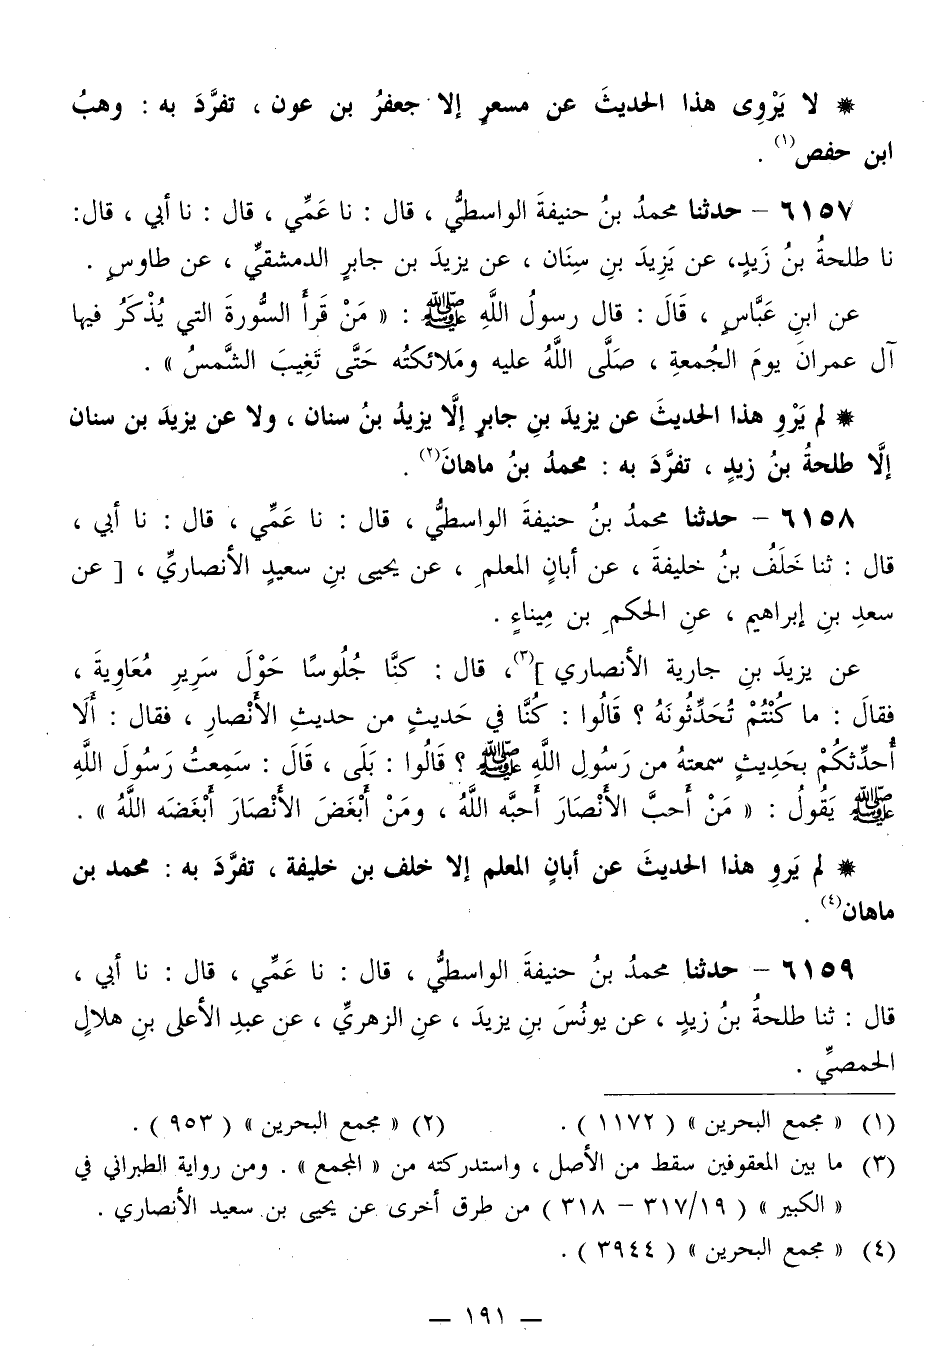 * لا يَرْوِى هذا الحديثَ عن مسعرٍ إلا جعفرُ بن عون ، تفرَّدَ به : وهبُ
ابن حفص(١) .
٦١٥٧ – حدثنا محمدُ بنُ حنيفةَ الواسطيُّ ، قال : نا عَمِّي ، قال : نا أبي ، قال:
نا طلحةُ بنُ زَيدٍ، عن يَزِيدَ بنِ سِنَان ، عن يزيدَ بن جابرٍ الدمشقيِّ ، عن طاوسٍ .
عن ابنِ عَبَّاسٍ ، قَالَ : قال رسولُ اللَّهِ ﷺ : « مَنْ قَرأَ السُّورةَ التي يُذْكَرُ فيها
آل عمرانَ يومَ الجُمعةِ ، صَلَّى اللَّهُ عليه ومَلائكتُه حَتَّى تَغِيبَ الشَّمسُ » .
* لم يَرْوِ هذا الحديثَ عن يزيدَ بنِ جابرٍ إلَّا يزيدُ بنُ سنان ، ولا عن يزيدَ بن سنان
إلَّا طلحةُ بنُ زيدٍ ، تفرَّدَ به : محمدُ بنُ ماهانَ(٢) .
٦١٥٨ – حدثنا محمدُ بنُ حنيفةَ الواسطيُّ ، قال : نا عَمِّي ، قال : نا أبي ،
قال : ثنا خَلَفُ بنُ خليفةَ ، عن أبانٍ المعلمِ ، عن يحيى بنِ سعيدٍ الأنصاريِّ ، [ عن
سعدِ بنِ إبراهيم ، عنِ الحكمِ بن مِيناءٍ .
عن يزيدَ بنِ جارية الأنصاري ](٣)، قال : كنَّا جُلُوسًا حَوْلَ سَرِيرِ مُعَاوِيةَ ،
فقالَ : ما كُنْتُمْ تُحَدِّثُونَهُ ؟ قَالُوا : كُنَّا في حَديثٍ من حديثِ الأَنْصارِ ، فقال : أَلَا
أُحدِّثكُمْ بحَدِيثٍ سمعتهُ من رَسُولِ اللَّهِ ﷺ ؟ قَالُوا : بَلَى ، قَالَ : سَمِعتُ رَسُولَ اللَّهِ
ﷺ يَقُولُ : « مَنْ أحبَّ الأَنْصَارَ أَحبَّه اللَّهُ ، ومَنْ أَبْغَضَ الأَنْصَارَ أَبْغَضَه اللَّهُ » .
* لم يَروِ هذا الحديثَ عن أبانٍ المعلم إلا خلف بن خليفة ، تفرَّدَ به : محمد بن
ماهان(٤) .
٦١٥٩ – حدثنا محمدُ بنُ حنيفةَ الواسطيُّ ، قال : نا عَمِّي ، قال : نا أبي ،
قال : ثنا طلحةُ بنُ زيدٍ ، عن يونُسَ بنِ يزيدَ ، عنِ الزهريِّ ، عن عبدِ الأعلى بنِ هلالٍ
الحمصيِّ .
(١) « مجمع البحرين » ( ١١٧٢ ) . (٢) « مجمع البحرين » ( ٩٥٣ ) .
(٣) ما بين المعقوفين سقط من الأصل ، واستدركته من « المجمع » . ومن رواية الطبراني في
« الكبير » ( ٣١٧/١٩ – ٣١٨ ) من طرق أخرى عن يحيى بن سعيد الأنصاري .
(٤) « مجمع البحرين » ( ٣٩٤٤ ) .
– ١٩١ –